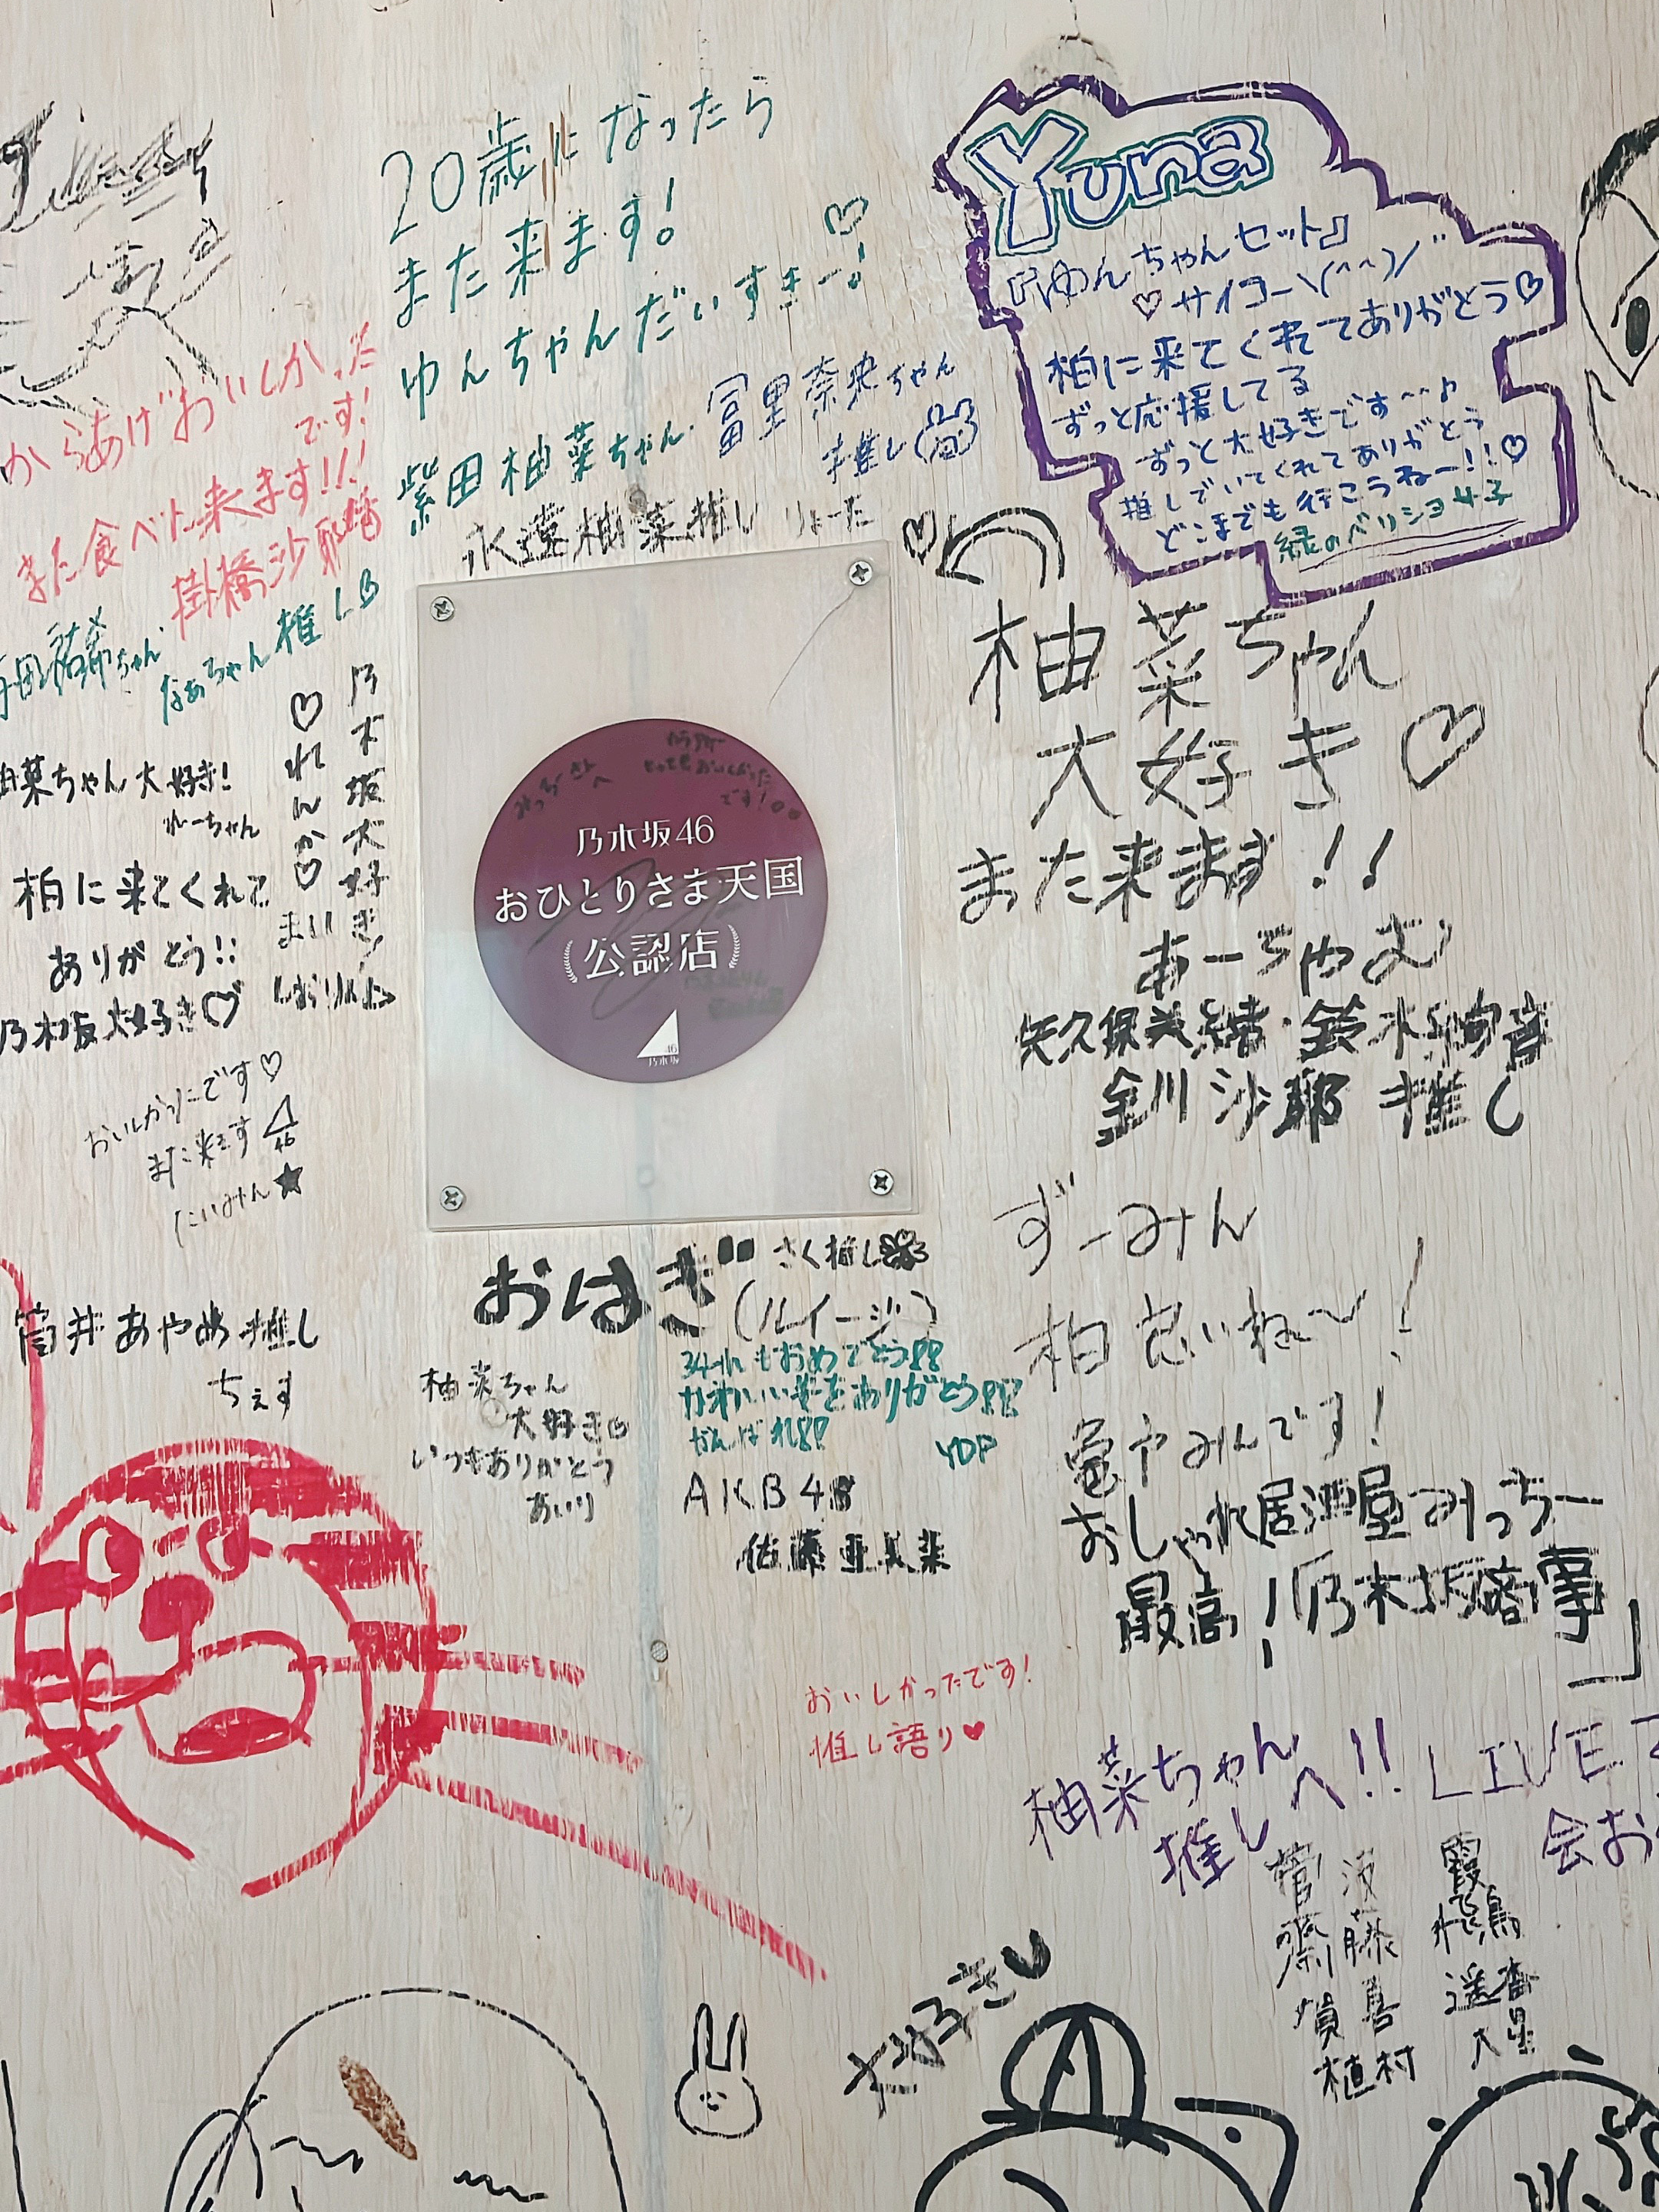 20歳になったら
また来ます!
ゆんちゃんだいすきー!
柴田柚菜ちゃん
冨里奈央ちゃん
推し
永遠柚菜推し りょーた
Yuna
『ゆんちゃんセット』
サイコー\(^^)/
柏に来てくれてありがとう
ずっと応援してる
ずっと大好きです〜♪
推しでいてくれてありがとう
どこまでも行こうねー!!
緑のペリショ女子
からあげおいしかった
です!
また食べに来ます!!!
掛橋沙耶香
祐希ちゃん
なぁちゃん推し
菜ちゃん大好き!
れーちゃん
柏に来てくれて
ありがとう!!
乃木坂大好き
乃木坂大好き!
れんか
まい
しおりん
おいしかったです
また来ます
46
たいみん★
乃木坂46
おひとりさま天国
(公認店)
46
乃木坂
柚菜ちゃん
大好き
また来ます!!
あーちゃむ
矢久保美緒・鈴木絢音
金川沙耶 推し
ずーみん
柏良いね〜!
竜やみんです!
おしゃれ居酒屋みっちー
最高!「乃木坂商事」
おはぎ
さく推し
(ルイージ)
34thもおめでとう!!
かわいい姿をありがとう!!
がんばれ!!
YDP
筒井あやめ推し
ちぇす
柚菜ちゃん
大好き
いつもありがとう
あいり
AKB48
佐藤亜美菜
おいしかったです!
推し語り♥
柚菜ちゃん
推しへ!! LIVE
会お
大好き
植村